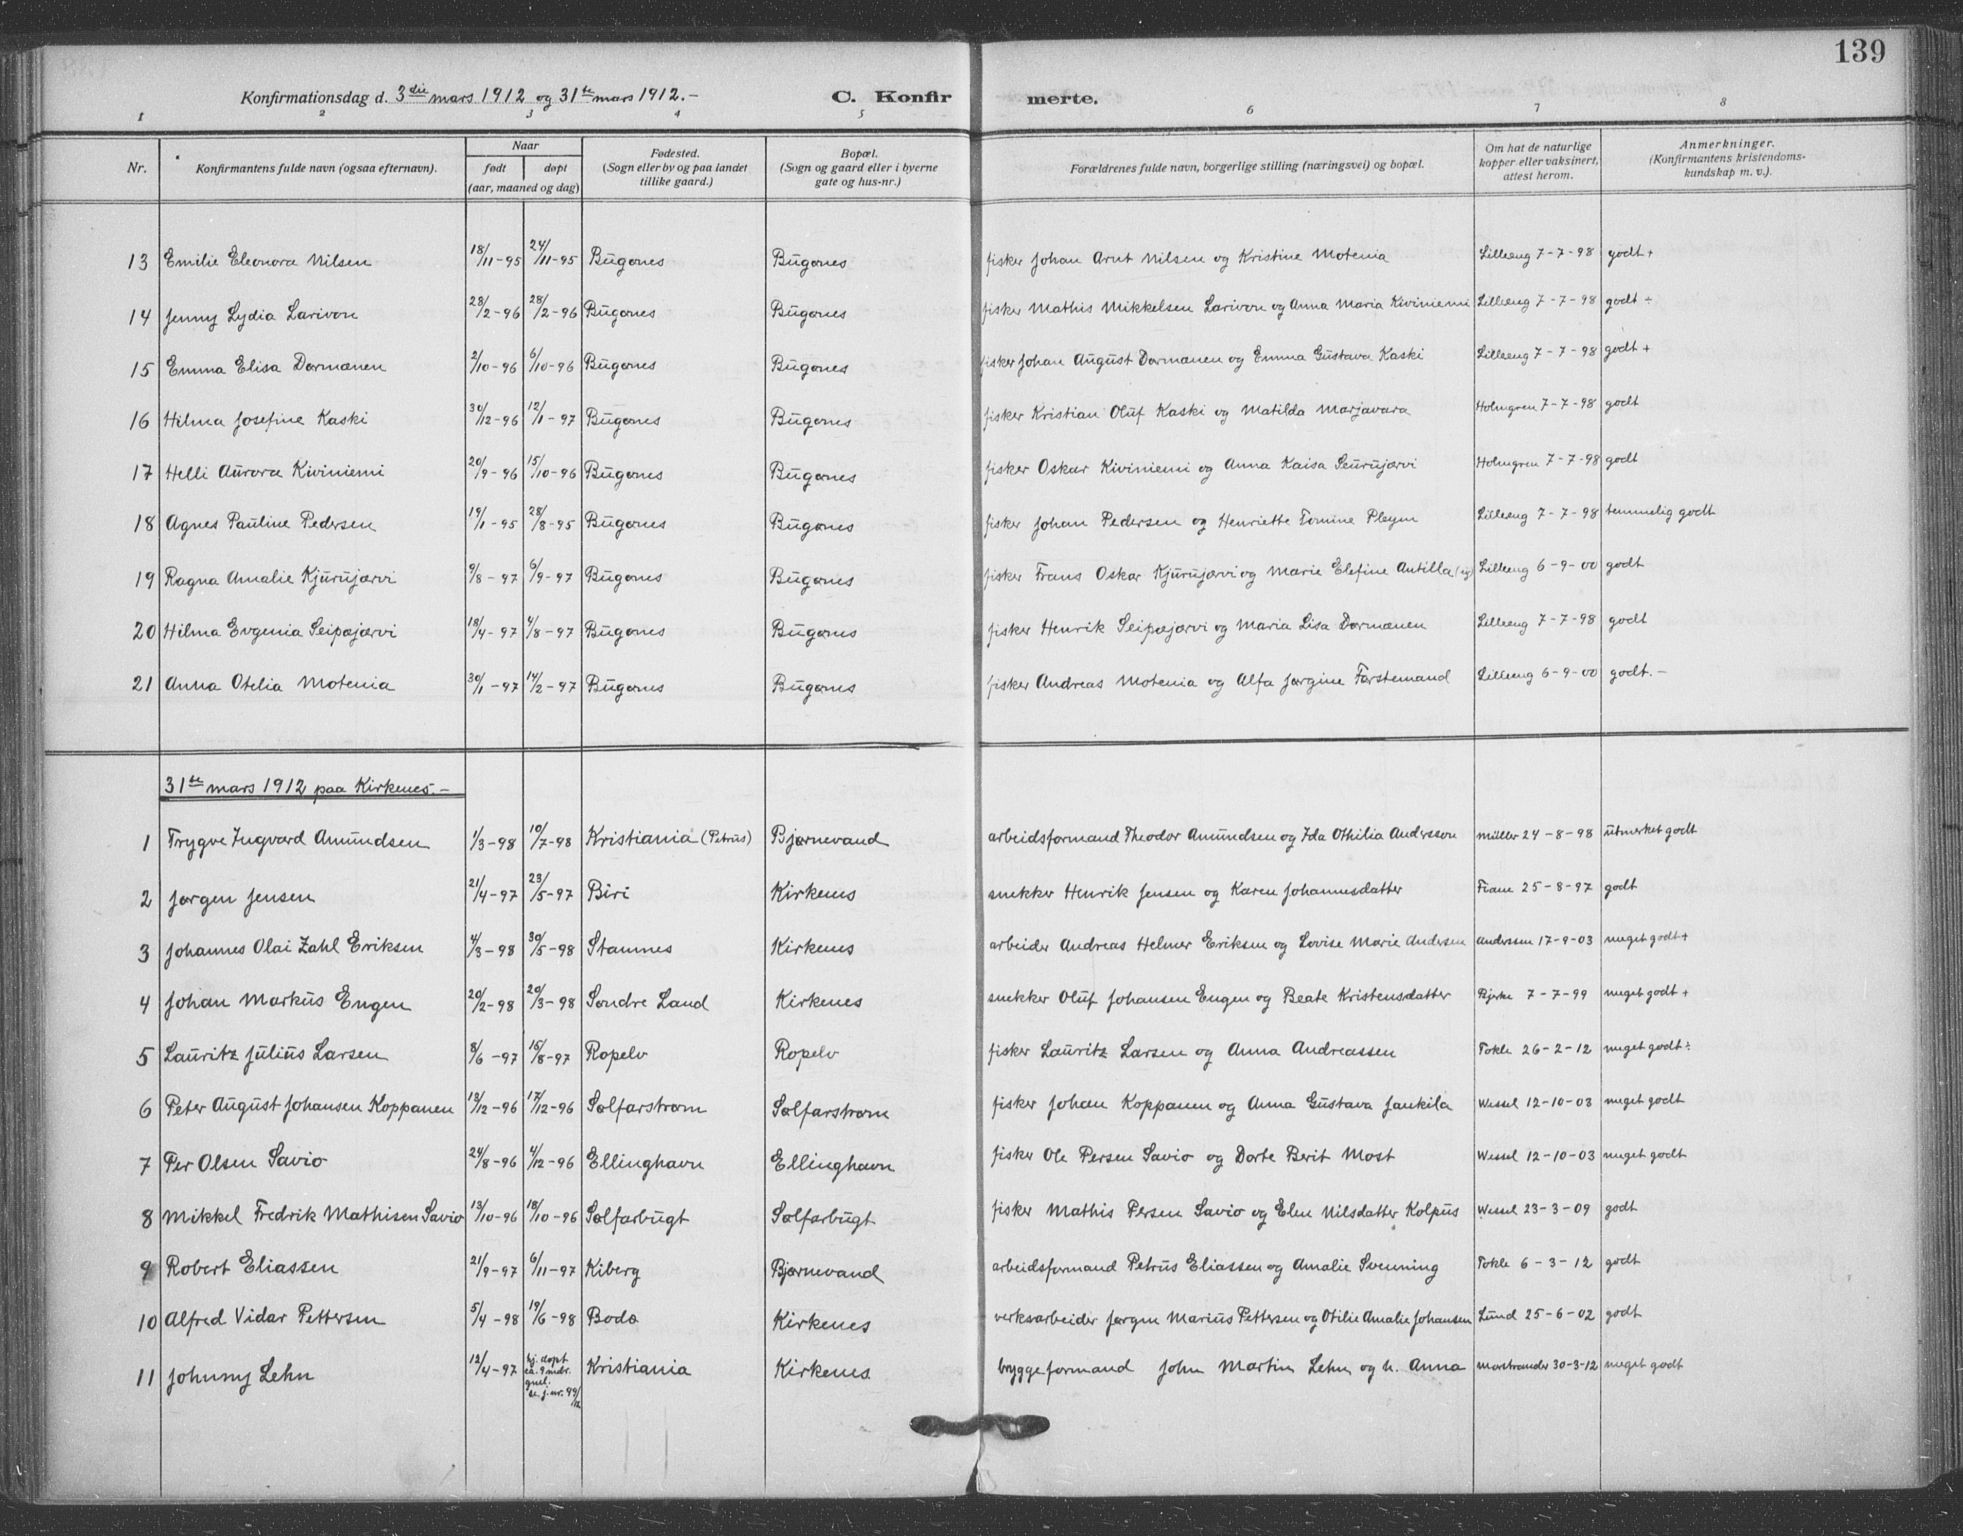 139
Konfirmationsdag d. 3die mars 1912 og 31te mars 1912.- C. Konfirmerte.
1 2 3 4 5 6 7 8
Nr. Konfirmantens fulde navn (ogsaa efternavn). Naar født døpt (aar, maaned og dag) Fødested. (Sogn eller by og paa landet tillike gaard.) Bopæl. (Sogn og gaard eller i byerne gate og hus-nr.) Forældrenes fulde navn, borgerlige stilling (næringsvei) og bopæl. Om hat de naturlige kopper eller vaksinert, attest herom. Anmerkninger. (Konfirmantens kristendoms-kundskap m. v.).
13 Emilie Eleonora Nilsen 18/11-95 24/11-95 Bugønes Bugønes fisker Johan Arnt Nilsen og Kristine Motenia Lilleeng 7-7-98 godt +
14 Jenny Lydia Larivon 28/2-96 28/2-96 Bugønes Bugønes fisker Mathis Mikkelsen Larivon og Anna Maria Kiviniemi Lilleeng 7-7-98 godt ÷
15 Emma Elisa Dormænen 2/10-96 6/10-96 Bugønes Bugønes fisker Johan August Dormænen og Emma Gustava Kaski Lilleeng 7-7-98 godt +
16 Hilma Josefine Kaski 30/12-96 12/1-97 Bugønes Bugønes fisker Kristian Oluf Kaski og Matilda Marjavara Holmgren 7-7-98 godt
17 Helli Aurora Kiviniemi 20/9-96 15/10-96 Bugønes Bugønes fisker Oskar Kiviniemi og Anna Kaisa Seurujærvi Holmgren 7-7-98 godt
18 Agnes Pauline Pedersen 19/1-95 28/8-95 Bugønes Bugønes fisker Johan Pedersen og Henriette Tomine Pleym Lilleeng 7-7-98 temmelig godt
19 Ragna Amalie Kjurujærvi 9/8-97 6/9-97 Bugønes Bugønes fisker Frans Oskar Kjurujærvi og Marie Elefine Antilla (ug) Lilleeng 6-9-00 godt
20 Hilma Evgenia Seipæjærvi 18/4-97 4/8-97 Bugønes Bugønes fisker Henrik Seipæjærvi og Maria Lisa Dormænen Lilleeng 7-7-98 godt
21 Anna Otelia Motenia 30/1-97 14/2-97 Bugønes Bugønes fisker Andreas Motenia og Alfa Jørgine Førstemand Lilleeng 6-9-00 godt.-
31te mars 1912 paa Kirkenes.-
1 Trygve Ingvard Amundsen 1/3-98 10/7-98 Kristiania (Petrus) Bjørnevand arbeidsformand Theodor Amundsen og Ida Othilia Andersson Müller 24-8-98 utmerket godt
2 Jørgen Jensen 21/4-97 23/5-97 Biri Kirkenes snekker Henrik Jensen og Karen Johannesdatter Fiane 25-8-97 godt
3 Johannes Olai Zahl Eriksen 4/3-98 30/5-98 Stamnes Kirkenes arbeider Andreas Helmer Eriksen og Lovise Marie Andersen Anderssen 17-9-03 meget godt +
4 Johan Markus Engen 20/2-98 20/3-98 Søndre Land Kirkenes snekker Oluf Johansen Engen og Beate Kristensdatter Bjerke 7-7-99 meget godt +
5 Lauritz Julius Larsen 8/6-97 15/8-97 Ropelv Ropelv fisker Lauritz Larsen og Anna Andreassen Tokle 26-2-12 meget godt ÷
6 Peter August Johansen Koppanen 13/12-96 17/12-96 Sølfarstrøm Sølfarstrøm fisker Johan Koppanen og Anna Gustava Jankila Wessel 12-10-03 meget godt
7 Per Olsen Savio 24/8-96 4/12-96 Ellinghavn Ellinghavn fisker Ole Persen Savio og Dorte Berit Most Wessel 12-10-03 meget godt
8 Mikkel Fredrik Mathisen Savio 13/10-96 18/10-96 Sølfarbugt Sølfarbugt fisker Mathis Persen Savio og Elen Nilsdatter Kolpus Wessel 23-3-09 godt
9 Robert Eliassen 21/9-97 6/11-97 Kiberg Bjørnevand arbeidsformand Petrus Eliassen og Amalie Svenning Tokle 6-3-12 godt
10 Alfred Vidar Pettersen 5/4-98 19/6-98 Bodø Kirkenes verksarbeider Jørgen Marius Pettersen og Otilie Amalie Johansen Lund 25-6-02 godt
11 Johnny Lehn 12/4-97 hj.døpt ca. 9 mdr. gml. se j.nr. 99/12 Kristiania Kirkenes bryggeformand John Martin Lehn og h. Anna Morstrander 30-3-12 meget godt